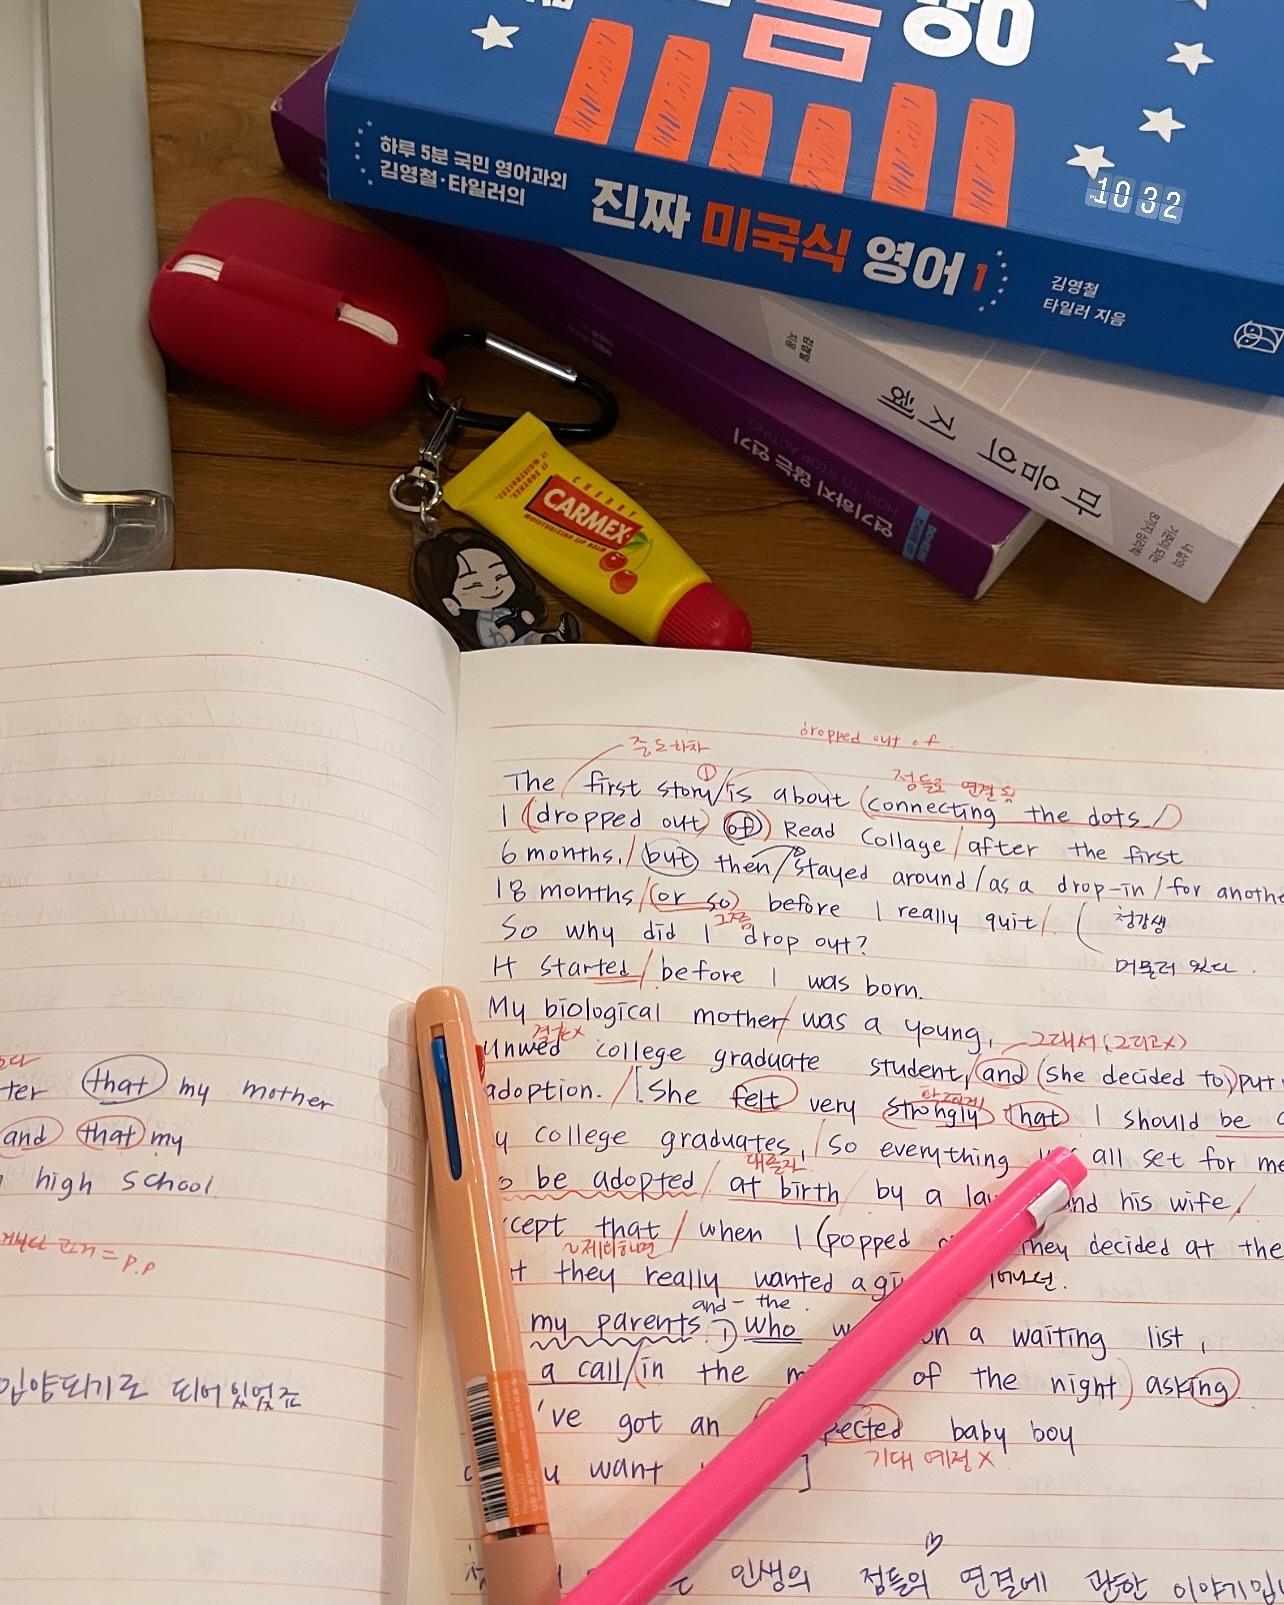 하루 5분 국민 영어과외
김영철·타일러의
진짜 미국식 영어 1
김영철
타일러 지음
10 32
무의미의 스윽
연기하지 않는 연기
HOW TO STOP ACTING
CHERRY
CARMEX
MOISTURIZING LIP BALM
dropped out of.
중도하차
The first story/is about (connecting the dots./)
①
점들로 연결됨
I (dropped out) (of)) Read Collage/after the first
6 months./but then/stayed around/as a drop-in/for anothe
18 months/(or so) before I really quit/
그쯤
청강생
So why did I drop out?
머물러 있다.
It started/before I was born.
My biological mother/was a young,
결혼x
그래서(그리고x)
unwed college graduate student,/and (she decided to) put
adoption./[She felt very strongly that I should be a
y college graduates,/so everything all set for me
대졸자
o be adopted/at birth/by a la and his wife/.
cept that/when I (popped they decided at the
~제외하면
t they really wanted a gi
and - the.
my parents ① who on a waiting list,
a call/(in the m of the night) asking
've got an pected baby boy
기대 예정 x
u want ]
인생의 점들의 연결에 관한 이야기입
ter that my mother
and that my
high school
= p.p
입양되기로 되어 있었죠